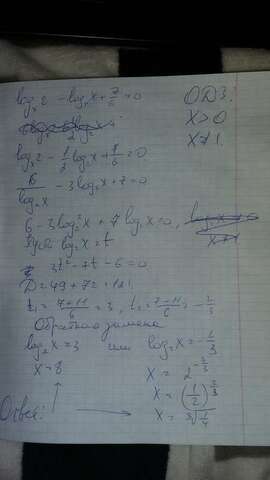 logₓ2 - log₄x + 7/6 = 0
ОДЗ:
x > 0
x ≠ 1
logₓ2 - 1/2 log₂x + 7/6 = 0
6/log₂x - 3log₂x + 7 = 0
6 - 3log₂²x + 7 log₂x = 0,
Пусть log₂x = t
3t² - 7t - 6 = 0
D = 49 + 72 = 121
t₁ = (7+11)/6 = 3, t₂ = (7-11)/6 = -2/3
Обратная замена
log₂x = 3 или log₂x = -2/3
x = 8
x = 2^(-2/3)
x = (1/2)^(2/3)
x = ∛(1/4)
Ответ: